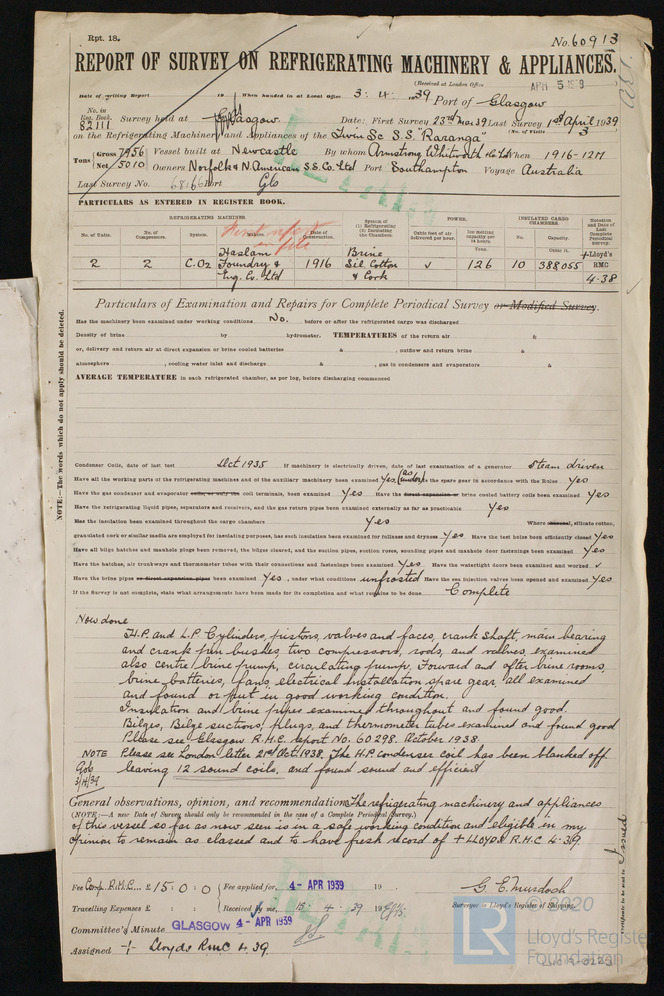 Rpt. 18.
No. 60913
REPORT OF SURVEY ON REFRIGERATING MACHINERY & APPLIANCES.
(Received at London Office APR 5 1939
Date of writing Report 19 When handed in at Local Office 3. 4. 39 Port of Glasgow
No. in Reg. Book. 82111 Survey held at Glasgow Date: First Survey 23rd Mar 39 Last Survey 1st April 1939
(No. of Visits 3
on the Refrigerating Machinery and Appliances of the Twin Sc S.S. "Raranga"
Tons Gross 7956 Net 5010 Vessel built at Newcastle By whom Armstrong Whitworth & Co Ltd When 1916-12M
Owners Norfolk & N. American S.S. Co. Ltd Port Southampton Voyage Australia
Last Survey No. 68166 Port Gls
PARTICULARS AS ENTERED IN REGISTER BOOK.
REFRIGERATING MACHINES. POWER. INSULATED CARGO CHAMBERS.
No. of Units. No. of Compressors. System. Date of Construction. System of (1) Refrigerating (2) Insulating the Chambers Cubic feet of air delivered per hour. Ice melting capacity per 24 hours. Tons. No. Capacity. Cubic ft. Notation and Date of Last Complete Periodical Survey.
2 2 C.O2 Haslam Foundry & Eng. Co. Ltd 1916 Brine Sil. Cotton & Cork ✓ 126 10 388055 + Lloyd's RMC 4-38
Particulars of Examination and Repairs for Complete Periodical Survey or Modified Survey.
Has the machinery been examined under working conditions No. before or after the refrigerated cargo was discharged
Density of brine by hydrometer. TEMPERATURES of the return air &
or, delivery and return air at direct expansion or brine cooled batteries & , outflow and return brine &
atmosphere , cooling water inlet and discharge & , gas in condensers and evaporators &
AVERAGE TEMPERATURE in each refrigerated chamber, as per log, before discharging commenced
NOTE:—The words which do not apply should be deleted.
Condenser Coils, date of last test Oct 1935 If machinery is electrically driven, date of last examination of a generator Steam driven
Have all the working parts of the refrigerating machines and of the auxiliary machinery been examined Yes, (as under) Is the spare gear in accordance with the Rules Yes
Have the gas condenser and evaporator coils, or only the coil terminals, been examined Yes Have the direct expansion or brine cooled battery coils been examined Yes
Have the refrigerating liquid pipes, separators and receivers, and the gas return pipes been examined externally as far as practicable Yes
Has the insulation been examined throughout the cargo chambers Yes Where charcoal, silicate cotton,
granulated cork or similar media are employed for insulating purposes, has such insulation been examined for fullness and dryness Yes Have the test holes been efficiently closed Yes
Have all bilge hatches and manhole plugs been removed, the bilges cleared, and the suction pipes, suction roses, sounding pipes and manhole door fastenings been examined Yes
Have the hatches, air trunkways and thermometer tubes with their connections and fastenings been examined Yes Have the watertight doors been examined and worked ✓
Have the brine pipes or direct expansion pipes been examined Yes, under what conditions unfrosted Have the sea injection valves been opened and examined Yes
If the Survey is not complete, state what arrangements have been made for its completion and what remains to be done Complete
Now done
H.P. and L.P. Cylinders, pistons, valves and faces, crank shaft, main bearing
and crank pin bushes, two compressors, rods, and valves, examined
also centre brine pump, circulating pump, Forward and after brine rooms,
brine batteries, fans, electrical installation spare gear all examined
and found or put in good working condition.
Insulation and brine pipes examined throughout and found good.
Bilges, Bilge suctions, Plugs, and thermometer tubes examined and found good
Please see Glasgow R.M.C. report No. 60298. October 1938.
NOTE Please see London letter 21st Oct. 1938. The H.P. condenser coil has been blanked off
Gls 3/4/39 leaving 12 sound coils, and found sound and efficient
General observations, opinion, and recommendation The refrigerating machinery and appliances
(NOTE:—A new Date of Survey should only be recommended in the case of a Complete Periodical Survey.)
of this vessel so far as now seen is in a safe working condition and eligible in my
opinion to remain as classed and to have fresh record of + LLOYDS R.M.C 4.39
Fee Comp. R.M.C. £ 15 : 0 : 0 Fee applied for, 4 - APR 1939 19 G. E. Murdoch
Travelling Expenses £ : : Received by me, 15. 4. 39 19 Surveyor to Lloyd's Register of Shipping.
Committee's Minute GLASGOW 4 - APR 1939
Assigned + Lloyds RMC 4.39
Certificate to be sent to Issued
© 2020
LR
Lloyd's Register
Foundation